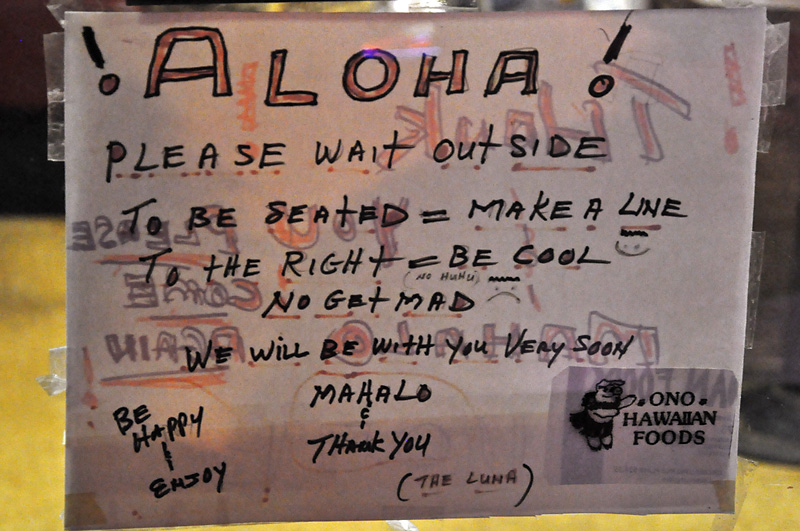 ! ALOHA !
PLEASE WAIt OUtSIDE
TO BE SEAtED = MAKE A LINE
TO tHE RIGHt = BE COOL
(NO HUHU)
NO GEt MAD
WE WILL BE WITH YOU VERY SOON
MAHALO
&
THANK YOU
(THE LUNA)
BE
HAPPY
&
ENJOY
ONO
HAWAIIAN
FOODS
THANK
YOU
PLEASE
COME
AGAIN